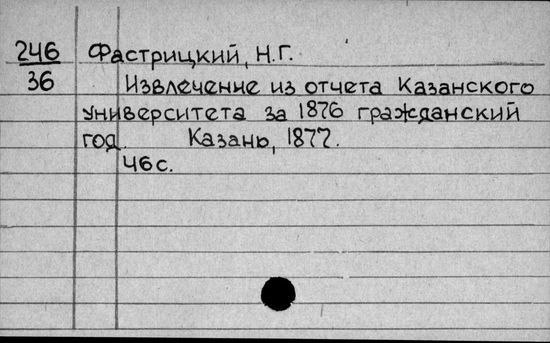 246 Фастрицкий, Н.Г.
36 Извлечение из отчета Казанского
университета за 1876 гражданский
год. Казань, 1877.
46 с.